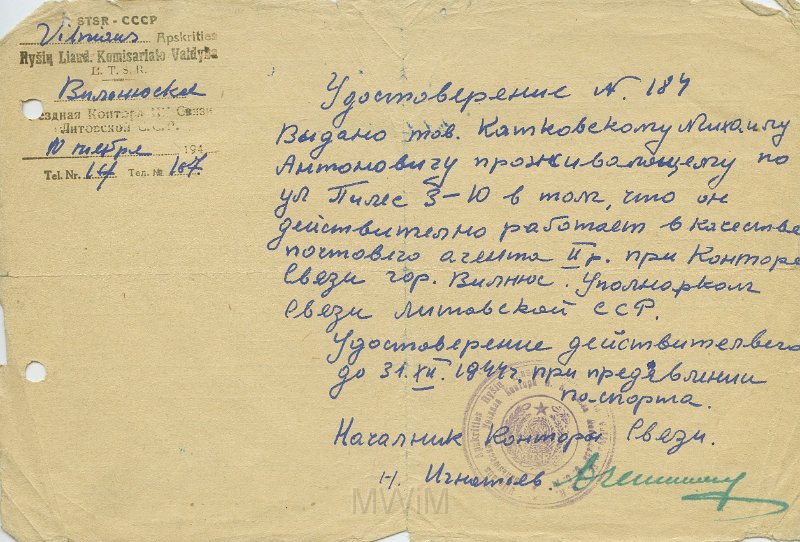 STSR - CCCP
Vilniaus Apskrities
Ryšių Liaud. Komisariato Valdyba
Виленская
ездная Контора Связи
Литовской С.С.Р.
10 194
Tel. Nr. 167 Тел. № 167.
Удостоверение N. 184
Выдано тов. Катковскому Михаилу
Антоновичу проживающему по
ул Пилес 3-10 в том, что он
действительно работает в качестве
почтового агента II р. при Конторе
Связи гор. Вилнюс. Уполнарком
Связи Литовской ССР.
Удостоверение
до 31. XII. 1944г, при предявлении
паспорта.
Началник Конторы Связи.
Н. Игнатьев.
MWiM